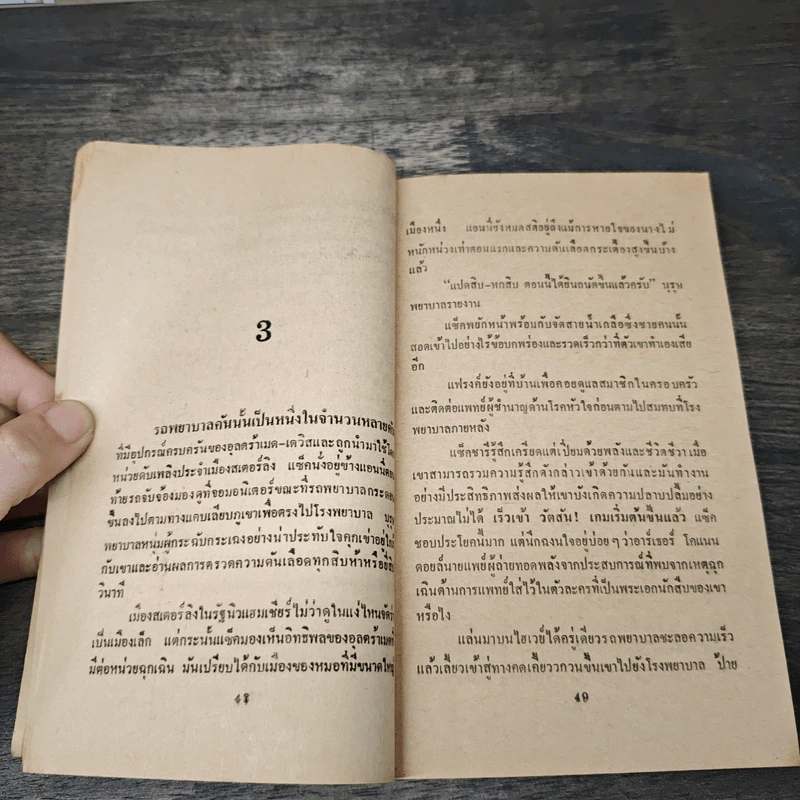 3
รถพยาบาลคันนั้นเป็นหนึ่งในจำนวนหลายคัน
ที่มีอุปกรณ์ครบครันของอุลตร้าเมด-เดวิสและถูกนำมาใช้โดย
หน่วยดับเพลิงประจำเมืองสเตอร์ลิง แซ็คนั่งอยู่ข้างแอนนี่ตอน
ท้ายรถจับจ้องมองดูที่จอมอนิเตอร์ขณะที่รถพยาบาลกระดอน
ขึ้นลงไปตามทางแคบเลียบภูเขาเพื่อตรงไปโรงพยาบาล บุรุษ
พยาบาลหนุ่มผู้กระฉับกระเฉงอย่างน่าประทับใจคุกเข่าอยู่ใกล้
กับเขาและอ่านผลการตรวดความดันเลือดทุกสิบห้าหรือยี่สิบ
วินาที
เมืองสเตอร์ลิงในรัฐนิวแฮมเชียร์ไม่ว่าดูในแง่ไหนจัดว่า
เป็นเมืองเล็ก แต่กระนั้นแซ็คมองเห็นอิทธิพลของอุลตร้าเมดที่
มีต่อหน่วยฉุกเฉิน มันเปรียบได้กับเมืองของหมอที่มีขนาดใหญ่
48
เมืองหนึ่ง แอนนี่ยังหมดสติอยู่ถึงแม้การหายใจของนางไม่
หนักหน่วงเท่าตอนแรกและความดันเลือดกระเตื้องสูงขึ้นบ้าง
แล้ว
"แปดสิบ-หกสิบ ตอนนี้ได้ยินถนัดขึ้นแล้วครับ" บุรุษ
พยาบาลรายงาน
แซ็คพยักหน้าพร้อมกับจัดสายน้ำเกลือซึ่งชายคนนั้น
สอดเข้าไปอย่างไร้ข้อบกพร่องและรวดเร็วกว่าที่ตัวเขาทำเองเสีย
อีก
แฟรงค์ยังอยู่ที่บ้านเพื่อคอยดูแลสมาชิกในครอบครัว
และติดต่อแพทย์ผู้ชำนาญด้านโรคหัวใจก่อนตามไปสมทบที่โรง
พยาบาลภายหลัง
แซ็คชารีรู้สึกเครียดแต่เปี่ยมด้วยพลังและชีวิตชีวา เมื่อ
เขาสามารถรวมความรู้สึกดังกล่าวเข้าด้วยกันและมันทำงาน
อย่างมีประสิทธิภาพส่งผลให้เขาบังเกิดความปลาบปลื้มอย่าง
ประมาณไม่ได้ เร็วเข้า วัตสัน! เกมเริ่มต้นขึ้นแล้ว แซ็ค
ชอบประโยคนี้มาก แต่นึกฉงนใจอยู่บ่อยๆ ว่าอาร์เธอร์ โคแนน
ดอยล์นายแพทย์ผู้ถ่ายทอดพลังจากประสบการณ์ที่พบจากเหตุฉุก
เฉินด้านการแพทย์ใส่ไว้ในตัวละครที่เป็นพระเอกนักสืบของเขา
หรือไง
แล่นมาบนไฮเวย์ได้ครู่เดียวรถพยาบาลชะลอความเร็ว
แล้วเลี้ยวเข้าสู่ทางคดเคี้ยววกวนขึ้นเขาไปยังโรงพยาบาล ป้าย
49